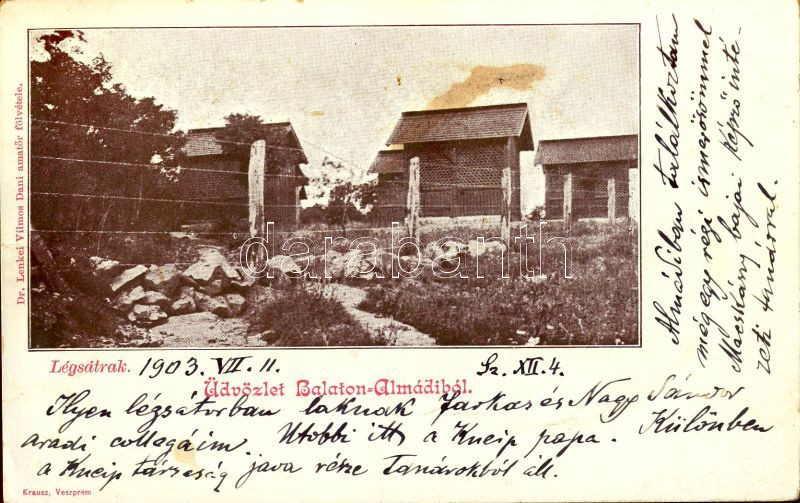 Dr. Lenkei Vilmos Dani amatőr fölvétele.
darabanth
Légsátrak. 1903. VII. 11. Sz. XII. 4.
Üdvözlet Balaton-Almádiból.
Ilyen légsátorban laknak Farkas és Nagy Sándor
aradi collegáim. Utobbi itt a Kneip papa. Különben
a Kneip társaság java része tanárokból áll.
Almádiban találkoztam
még egy régi ismerősömmel
bajai képző inté-
zeti tanárral.
Krausz, Veszprém